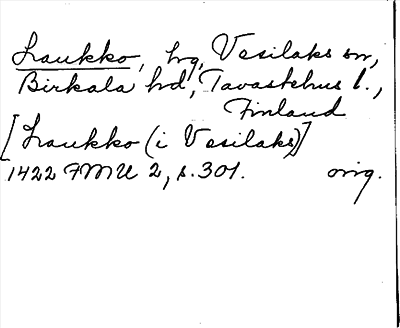 Laukko, hg, Vesilaks sn,
Birkala hd, Tavastehus l.,
Finland
[Laukko (i Vesilaks)]
1422 FMU 2, s. 301. orig.